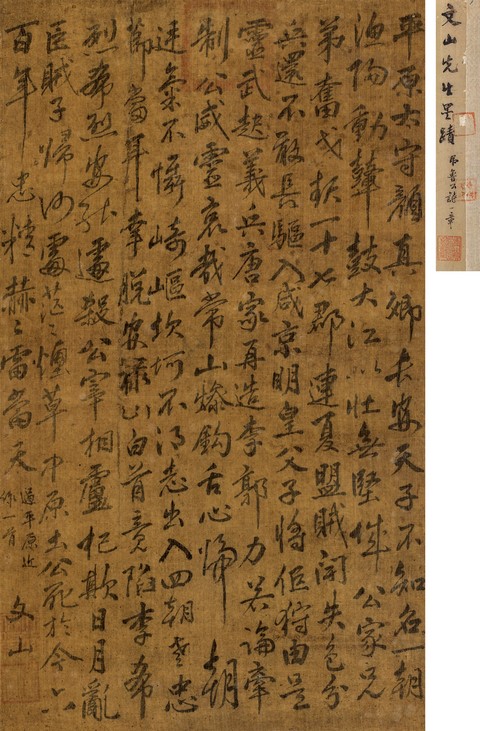 平原太守顏真卿長安天子不知名一朝
漁陽動鼙鼓大江以北無堅城公家兄
弟奮戈起一十七郡連夏盟賊聞失色分
兵還不敢長驅入咸京明皇父子將西狩由是
靈武起義兵唐家再造李郭力若論牽
制公威靈哀哉常山慘鈎舌心歸朝
廷氣不懾崎嶇坎坷不得志出入四朝老忠
節當年幸脫安祿山白首竟陷李希
烈希烈安能遽殺公宰相盧杞欺日月亂
臣賊子歸何處茫〻煙草中原土公死於今六
百年忠精赫〻雷當天
過平原近
作一首
文山
文山先生墨蹟
魯公詩一章